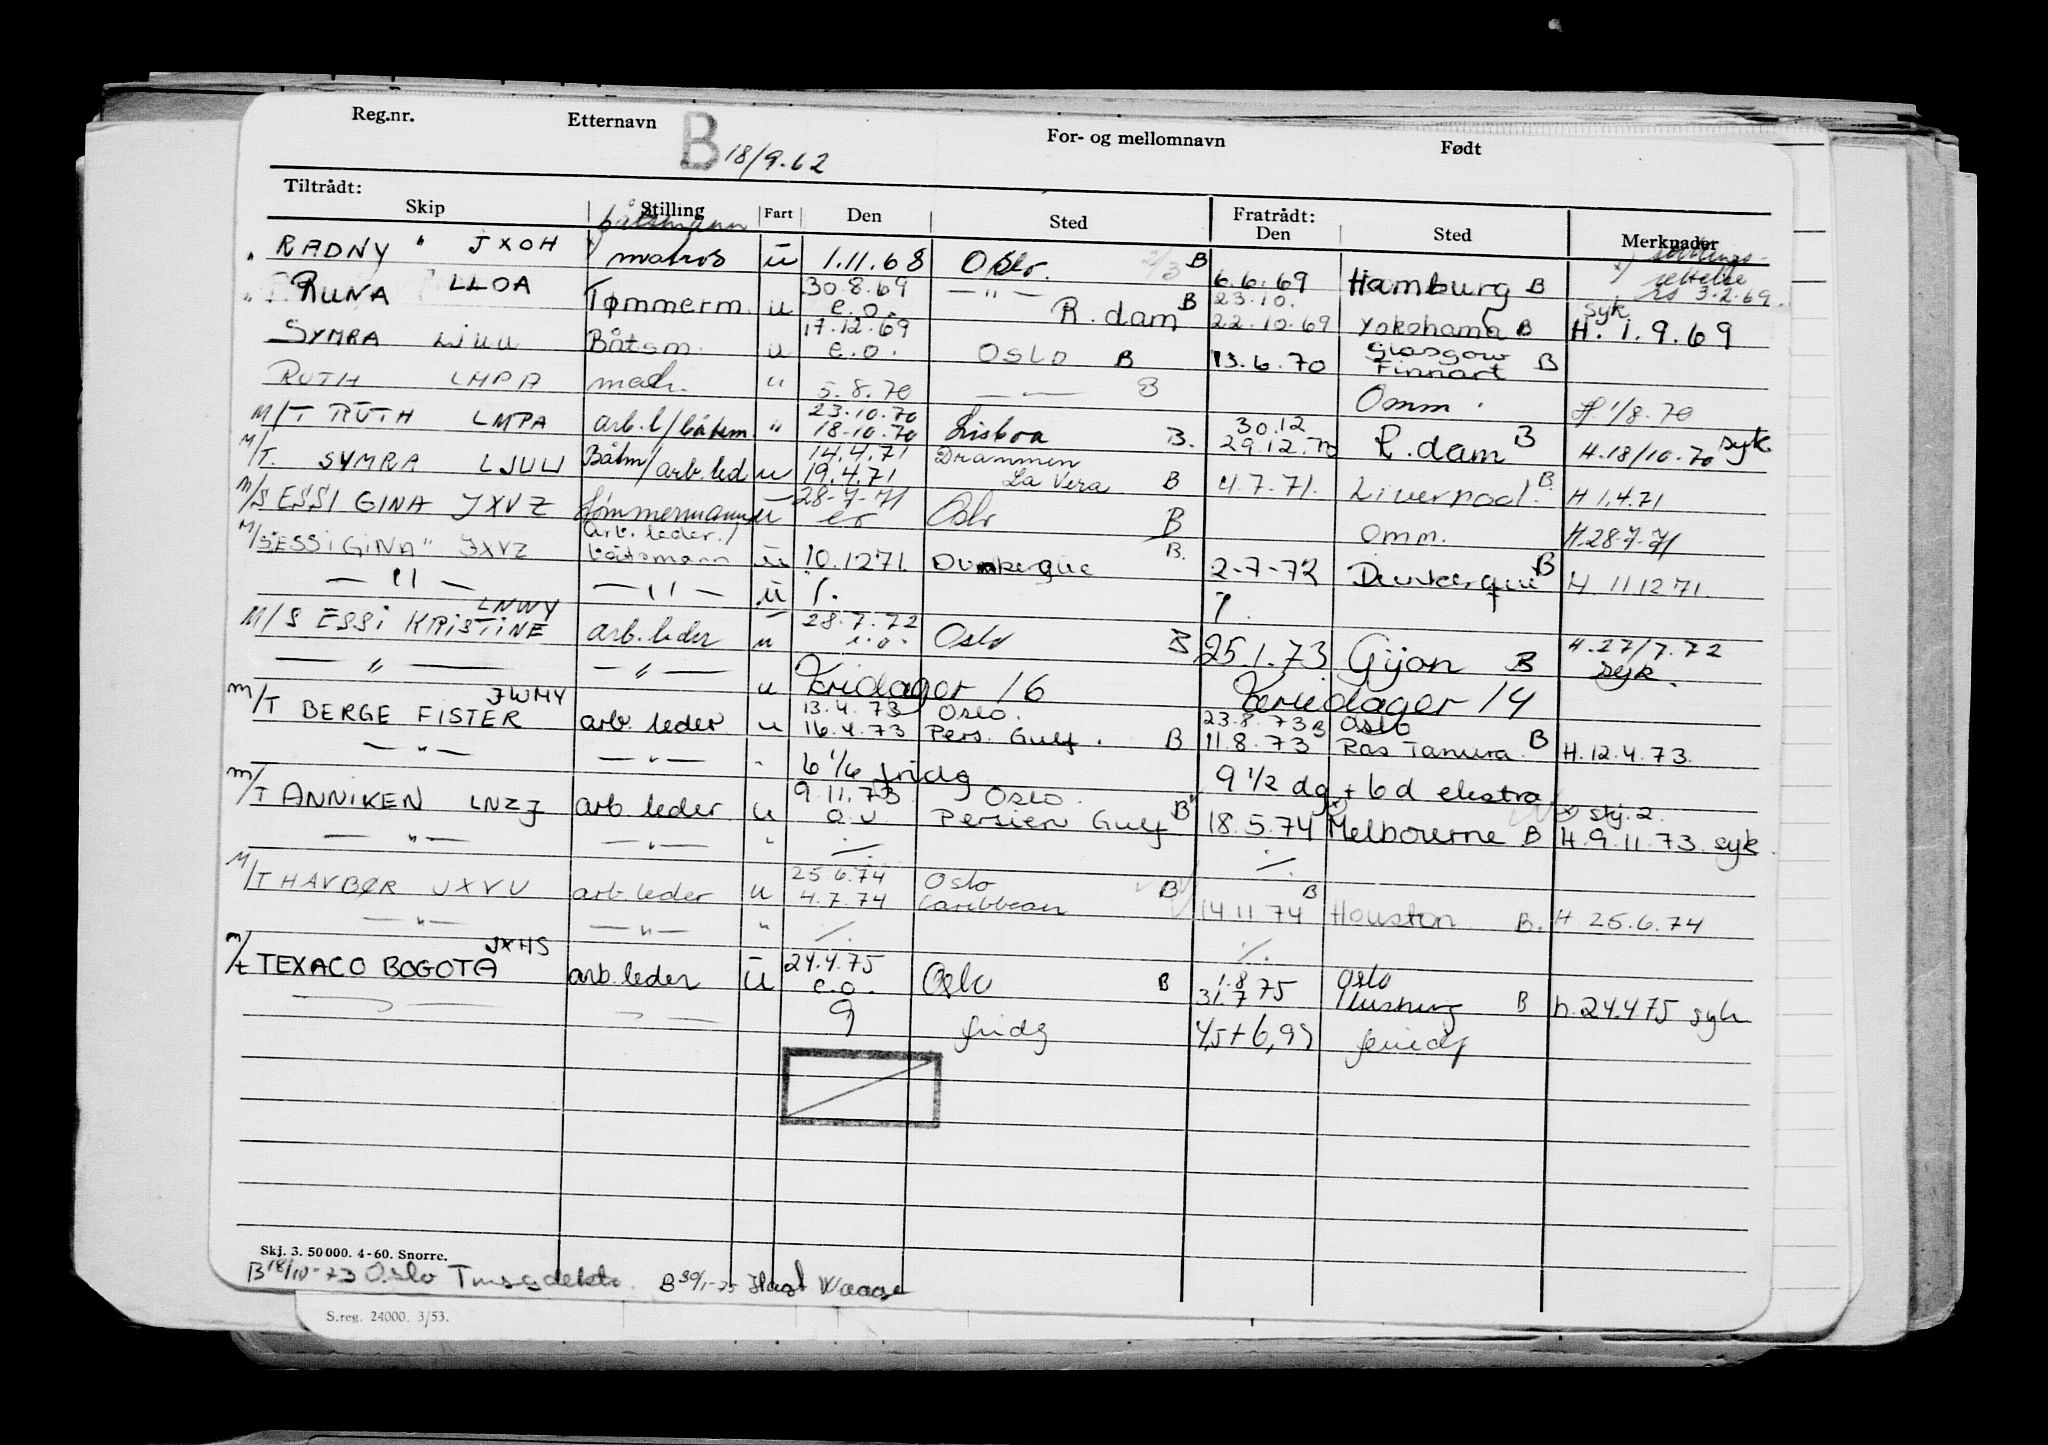 Reg.nr. Etternavn For- og mellomnavn Født
B 18/9.62
Tiltrådt: Fratrådt:
Skip Stilling Fart Den Sted Den Sted Merknader
båtsmann stillings-
" RADNY " JXOH matros ü 1.11.68 Oslo. 2/3 B 6.6.69 Hamburg B rettelse
rs 3.2.69.
" RUNA LLOA Tømmerm. u 30.8.69 — " — 23.10. syk
e.o. R.dam B 22.10.69 Yokohama B H. 1.9.69
SYMRA LJUU Båtsm. u 17.12.69 Glasgow
e.o. OSLO B 13.6.70 Finnart B
RUTH LMPA matr. " 5.8.70 — " — B Omm. H. 1/8.70
M/T RUTH LMPA arb.l/båtsm. " 23.10.70 30.12
18.10.70 Lisboa B. 29.12.70 R.dam B H.18/10.70 syk
M/T. SYMRA LJUU Båtm/arb.led u 14.4.71 Drammen
19.4.71 La Vera B 4.7.71. Liverpool. B. H 1.4.71
M/S ESSI GINA JXVZ tømmermann u 28-7-71
eo Oslo B Omm. H.28-7-71
M/S "ESSI GINA" JXVZ arb.leder/
båtsmann ü 10.1271. Dunkerque B. 2-7-72 Dunkerque B H 11.1271.
— " — — " — ü %. %.
LNWY
M/S ESSI KRISTINE arb.leder u 28.7.72
e.o. Oslo B 25.1.73 Gijon B H.27/7.72
syk.
— " — — " — u Fridager 16 Feriedager 14
JWMY
M/T BERGE FISTER arb.leder u 13.4.73 Oslo. 23.8.73 B Oslo
16.4.73 Pers. Gulf. B 11.8.73 Ras Tanura. B H.12.4.73.
— " — — " — " 6 1/6 fridg 9 1/2 dg + 6 d ekstra
M/T ANNIKEN LNZJ arb leder u 9.11.73 Oslo. x) skj.2.
o.u Persien Gulf B 18.5.74 x) Melbourne B H.9.11.73. syk.
— " — — " — " %. %.
M/T HAVBØR JXVU arb.leder u 25.6.74 Oslo
4.7.74 Caribbean B 14.11.74 B Houston B. H 25.6.74
— " — — " — " %. %.
JXHS
M/t TEXACO BOGOTA arb.leder ü 24.4.75
e.o. Oslo B 1.8 Oslo
31.7 75 Flushing B h.24.475 syk
9 fridg 4,5+6,99 feriedg
Skj. 3. 50 000. 4-60. Snorre.
B 18/10-73 Oslo B 30/1-75
S.reg. 24000. 3/53.